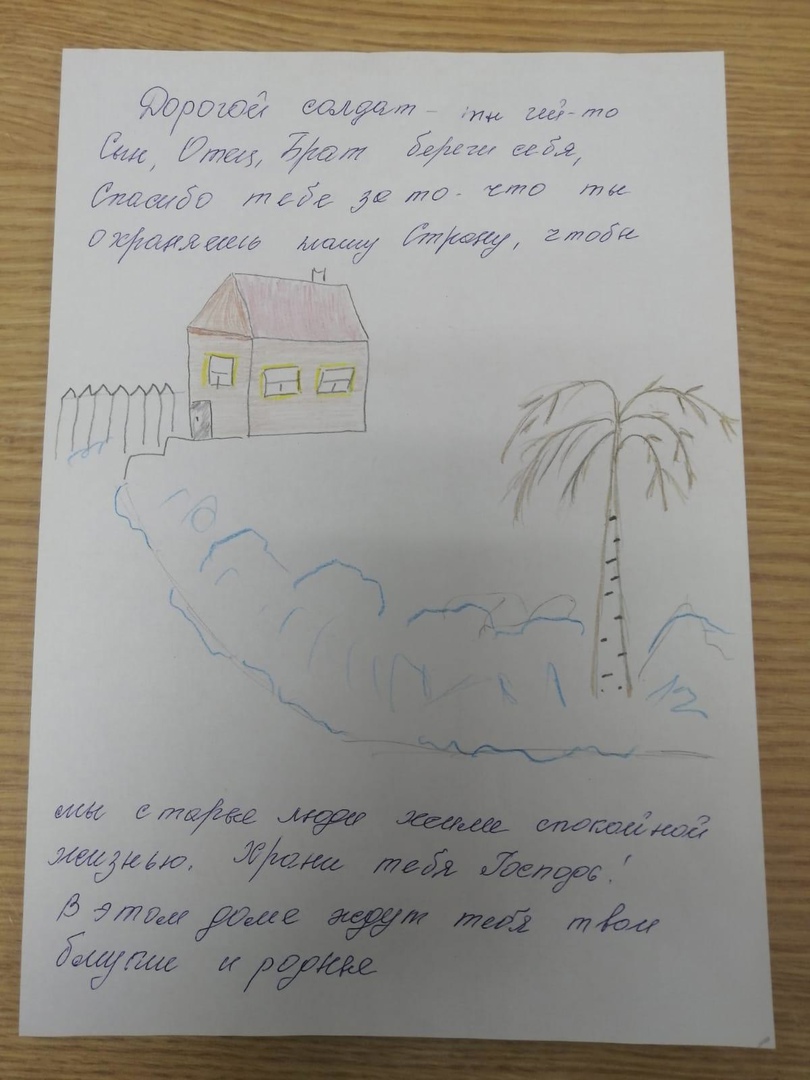 Дорогой солдат - ты чей-то
Сын, Отец, Брат береги себя,
Спасибо тебе за то - что ты
охраняешь нашу Страну, чтобы
мы старые люди жили спокойной
жизнью. Храни тебя Господь!
В этом доме ждут тебя твои
близкие и родные